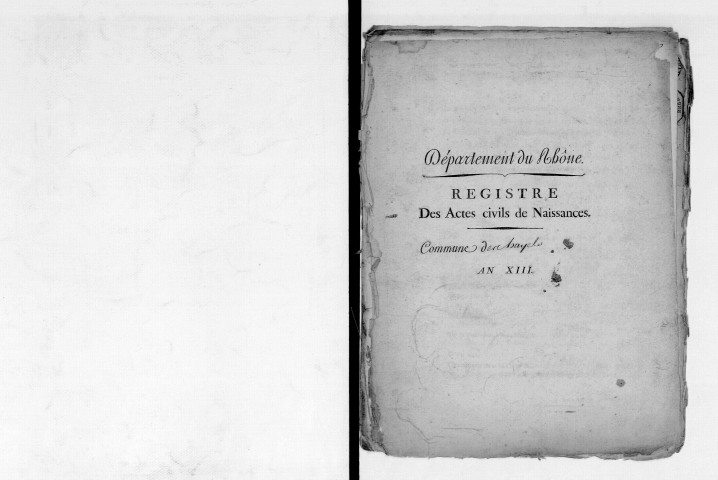 Département du Rhône.
REGISTRE
Des Actes civils de Naissances.
Commune de
AN XIII.